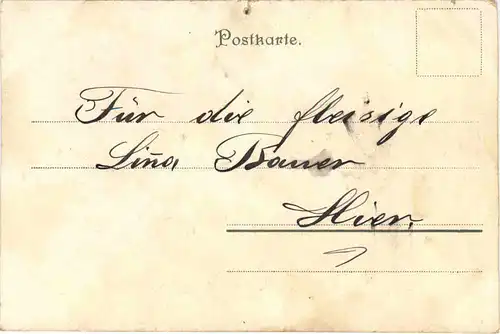 Postkarte.
Für die fleisige
Lina Bauer
Hier.